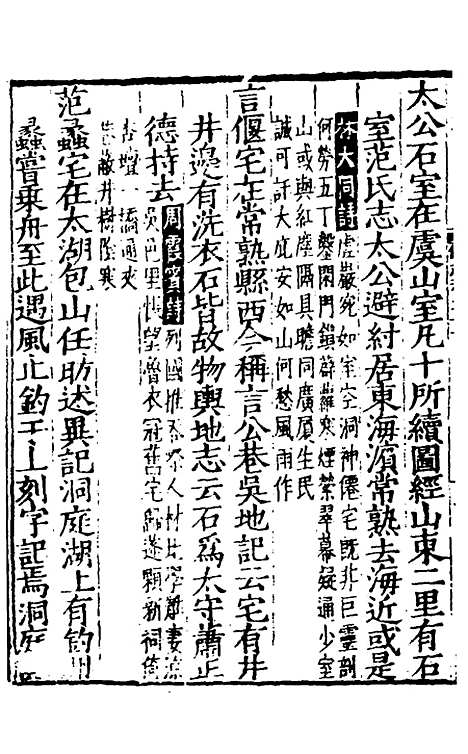 太公石室在虞山室凡十所續圖經山東二里有石
室范氏志太公避紂居東海濵常熟去海近或是
林大同詩虚巖宛如室空洞神僊宅既非巨靈剖
何勞五丁鑿閑門鎖薜蘿寒煙縈翠幕疑通少室
山或與紅塵隔具瞻同廣厦生民
誠可託大庇安如山何愁風雨作
言偃宅在常熟縣西今稱言公巷吳地記云宅有井
井邊有洗衣石皆故物輿地志云石爲太守蕭正
德持去周霞賓詩列國推人材
吳邑里悵望魯衣冠舊宅蓬顆新祠
杏壇一橋通夾
巷蔽井樹陰寒
范蠡宅在太湖包山任昉述異記洞庭湖上有釣州
蠡嘗乘舟至此遇風止釣于上刻字記焉洞庭